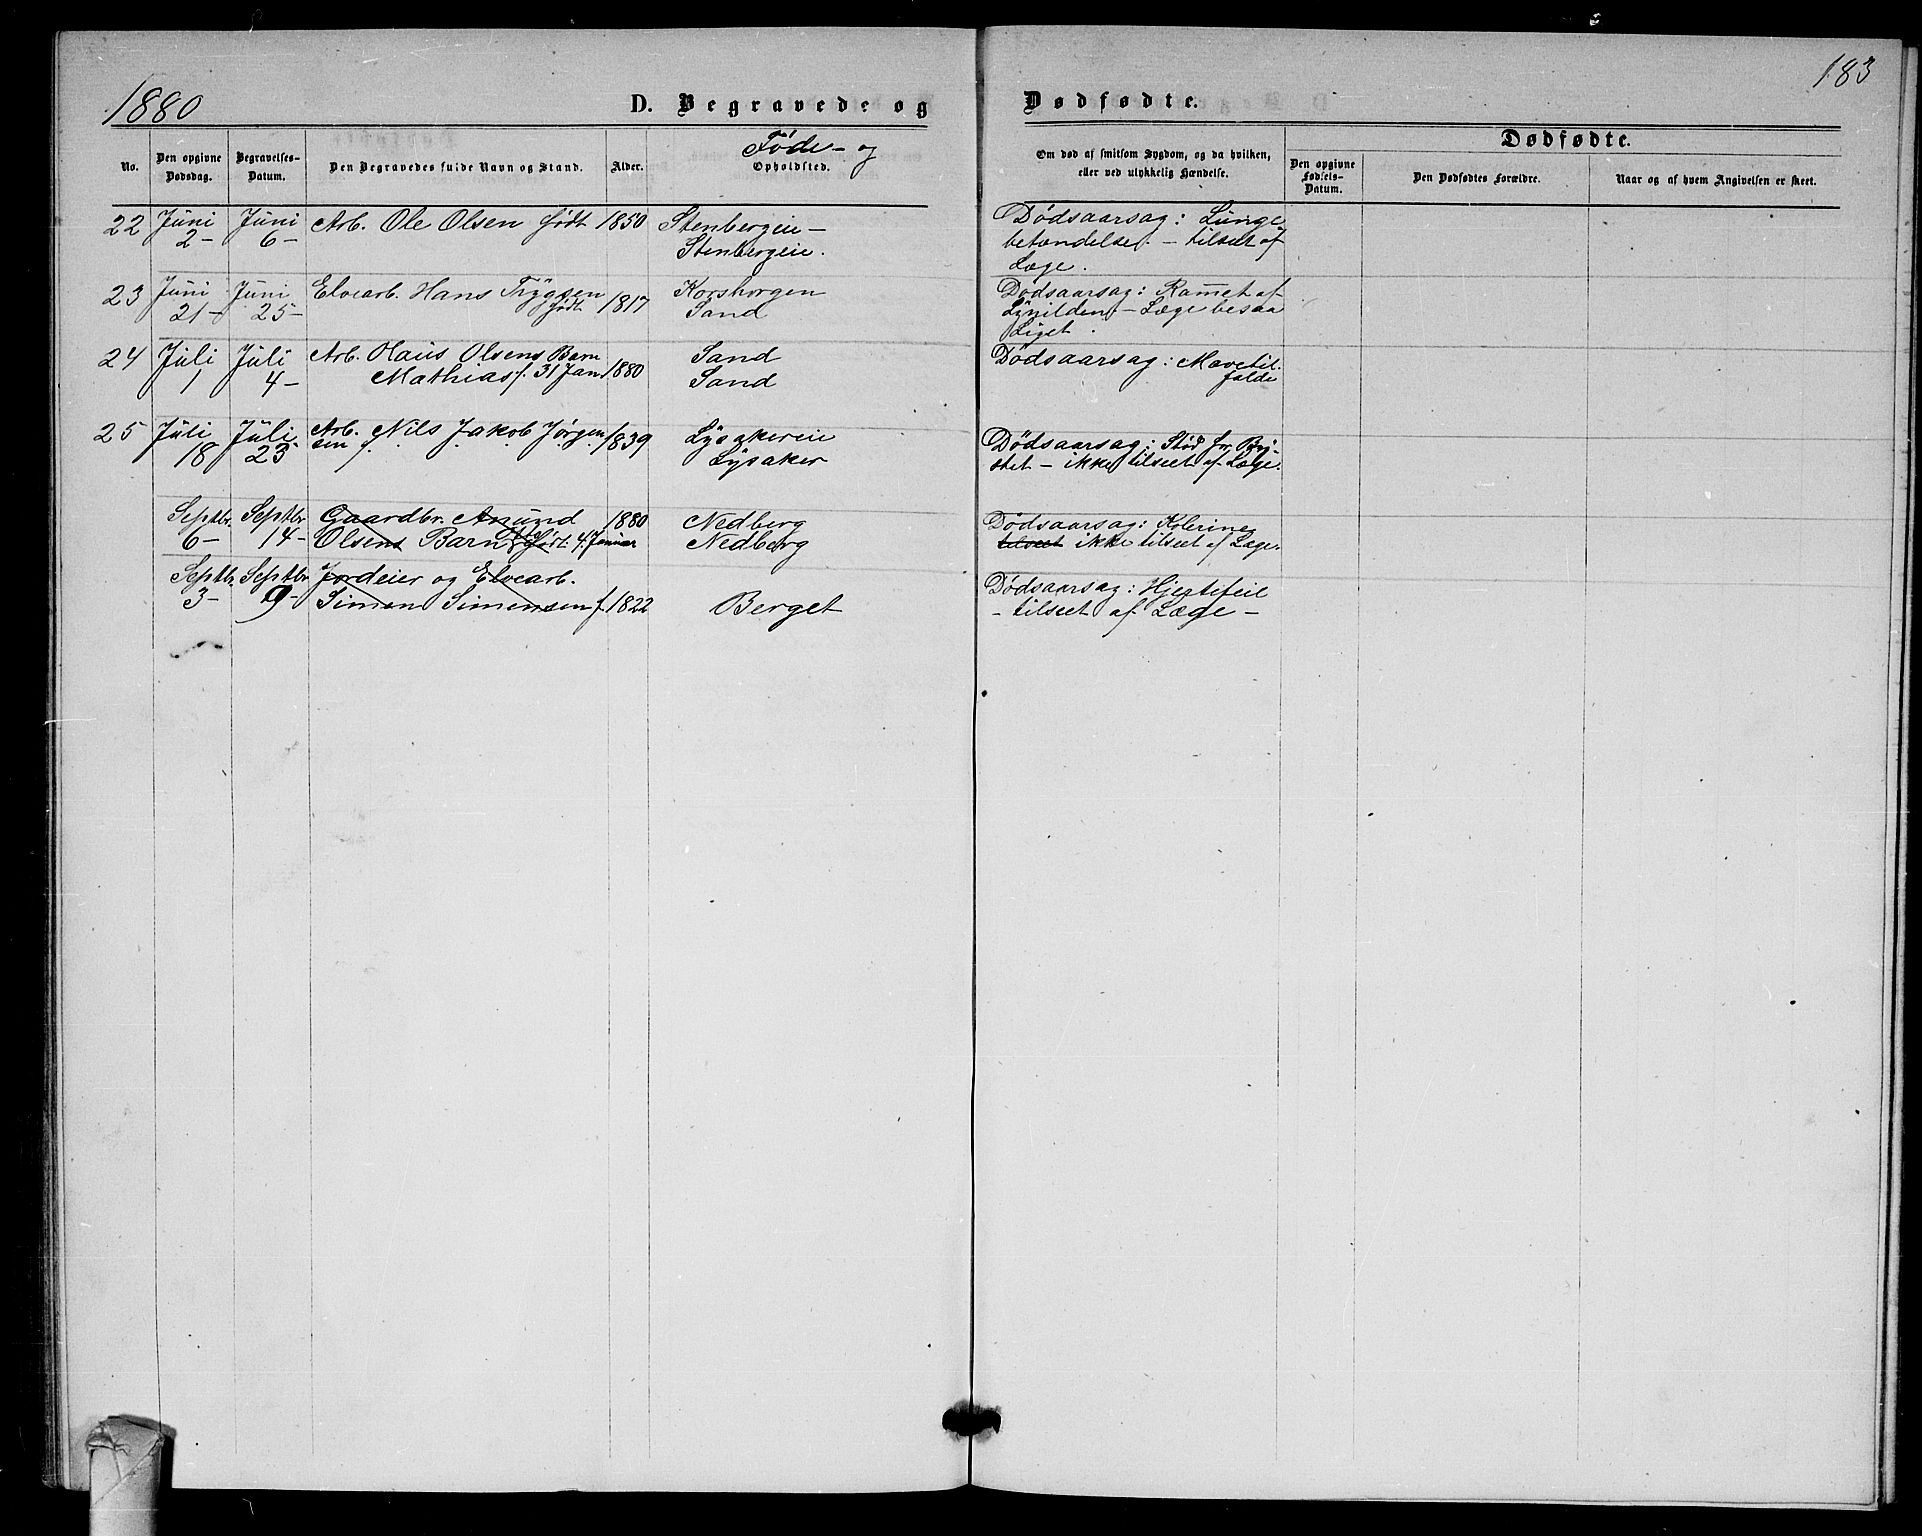 1880
D. Begravede og
Dødfødte.
183
No.
Den opgivne Dødsdag.
Begravelses-Datum.
Den Begravedes fulde Navn og Stand.
Alder.
Føde- og
Opholdsted.
Om død af smitsom Sygdom, og da hvilken,
eller ved ulykkelig Hændelse.
Dødfødte.
Den opgivne Fødsels-Datum.
Den Dødfødtes Forældre.
Naar og af hvem Angivelsen er skeet.
22 Juni Juni Arb. Ole Olsen født 1850 Stenbergeie – Dødsaarsag: Lunge
2– 6– Stenbergeie. betændelse. – tilseet af
Læge.
23 Juni Juni Elvearb. Hans Trygsen Korshorgen Dødsaarsag: Ramet af
21– 25– født 1817 Sand Lynilden – Læge besaa
Liget.
24 Juli Juli Arb. Olaus Olsens Barn Sand Dødsaarsag: Mavetil
1 4– Mathias f. 31 Jan 1880 Sand falde
25 Juli Juli Arb. Nils Jakob Jørgen 1839 Lysakereie Dødsaarsag: Stød for Bry-
18 23 sen f. Lysaker stet – ikke tilseet af Læge.
Septbr. Septbr. Gaardbr. Anund 1880 Nedberg Dødsaarsag: Kolerine
6– 14– Olsens Barn født 4. Januar Nedberg tilseet ikke tilseet af Læge.
Septbr. Septbr. Jordeier og Elvearb. Dødsaarsag: Hjertefeil
3– 9– Simen Simensen f. 1822 Berget – tilseet af Læge –